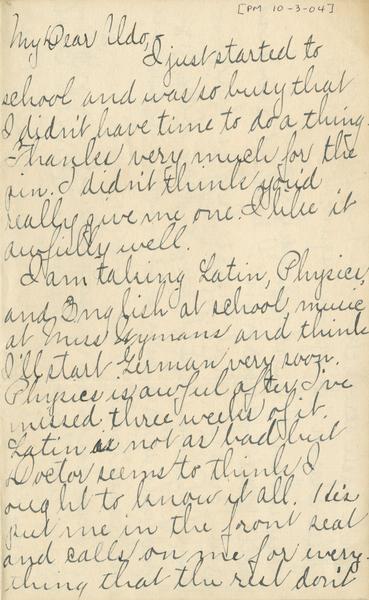 [PM 10-3-04]
My Dear Udo,
I just started to
school and was so busy that
I didn't have time to do a thing.
Thanks very much for the
pin. I didn't think you'd
really give me one. I like it
awfully well.
I am taking Latin, Physics,
and English at school, music
at Miss Wymans and think
I'll start German very soon.
Physics is awful after I've
missed three weeks of it.
Latin is not as bad but
Doctor seems to think I
ought to know it all. He's
put me in the front seat
and calls on me for every-
thing that the rest don't